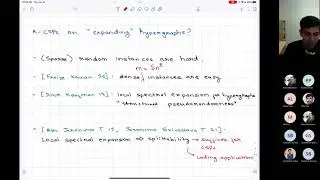 k-CSPs on "expanding" hypergraphs?
(Sparse) random instances are hard
m = Θn
[Frieze Kannan 96]: dense instances are easy
[Dinur Kaufman 17]: local spectral expansion for hypergraphs
"structural pseudorandomness"
[Alev Jeronimo T. 19, Jeronimo Srivastava T. 21]:
local spectral expansion ⇒ splittability → suffices for
CSPs
→ coding applications